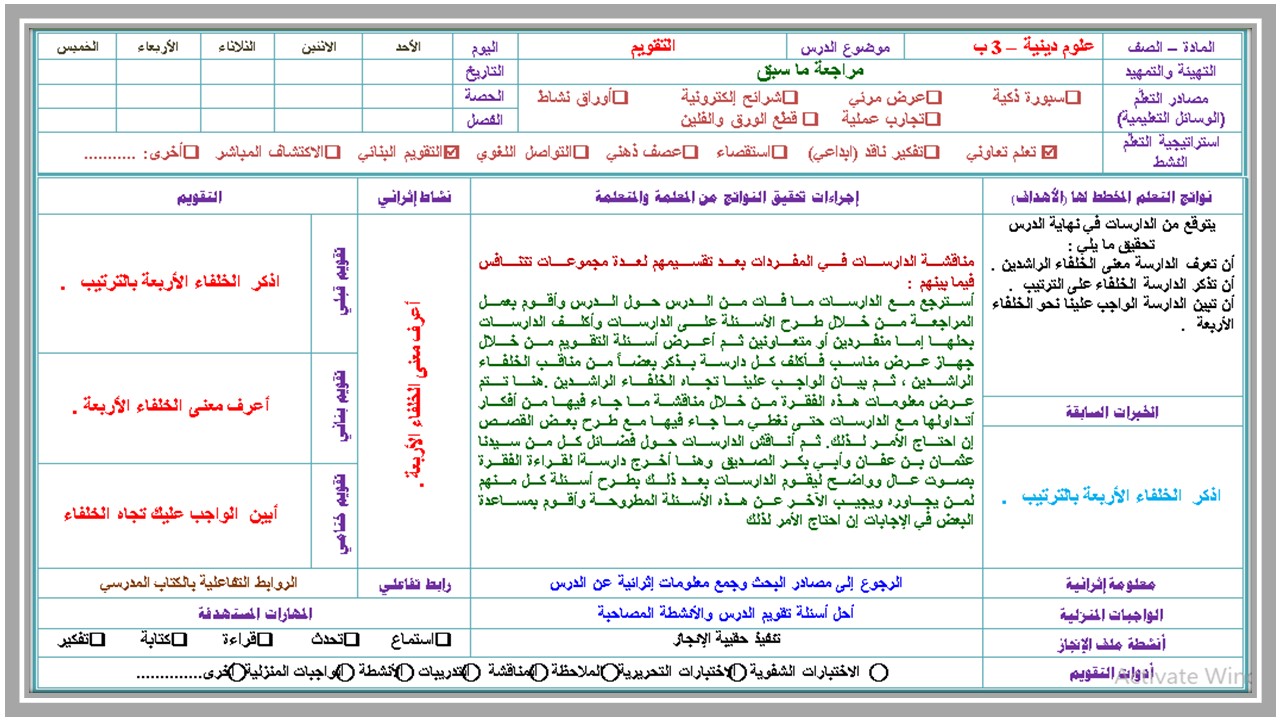 المادة – الصف علوم دينية – 3 ب موضوع الدرس التقويم اليوم الأحد الاثنين الثلاثاء الأربعاء الخميس
التهيئة والتمهيد مراجعة ما سبق التاريخ
مصادر التعلّم سبورة ذكية عرض مرئي شرائح إلكترونية أوراق نشاط الحصة
(الوسائل التعليمية) تجارب عملية قطع الورق والفلين الفصل
استراتيجية التعلّم النشط تعلم تعاوني تفكير ناقد (ابداعي) استقصاء عصف ذهني التواصل اللغوي التقويم البنائي الاكتشاف المباشر أخرى: ...........
نواتج التعلم المخطط لها (الأهداف) إجراءات تحقيق النواتج من المعلمة والمتعلمة نشاط إثرائي التقويم
يتوقع من الدارسات في نهاية الدرس
تحقيق ما يلي :
أن تعرف الدارسة معنى الخلفاء الراشدين .
أن تذكر الدارسة الخلفاء على الترتيب .
أن تبين الدارسة الواجب علينا نحو الخلفاء
الأربعة .
الخبرات السابقة
اذكر الخلفاء الأربعة بالترتيب .
مناقشة الدارسات في المفردات بعد تقسيمهم لعدة مجموعات تتنافس
فيما بينهم :
أسترجع مع الدارسات ما فات من الدرس حول الدرس وأقوم بعمل
المراجعة من خلال طرح الأسئلة على الدارسات وأكلف الدارسات
بحلها إما منفردين أو متعاونين ثم أعرض أسئلة التقويم من خلال
جهاز عرض مناسب فأكلف كل دارسة بذكر بعضاً من مناقب الخلفاء
الراشدين ، ثم بيان الواجب علينا تجاه الخلفاء الراشدين .هنا تتم
عرض معلومات هذه الفقرة من خلال مناقشة ما جاء فيها من أفكار
أتداولها مع الدارسات حتى نغطي ما جاء فيها مع طرح بعض القصص
إن احتاج الأمر لذلك. ثم أناقش الدارسات حول فضائل كل من سيدنا
عثمان بن عفان وأبي بكر الصديق وهنا أخرج دارسةا لقراءة الفقرة
بصوت عال وواضح ليقوم الدارسات بعد ذلك بطرح أسئلة كل منهم
لمن يجاوره ويجيب الآخر عن هذه الأسئلة المطروحة وأقوم بمساعدة
البعض في الإجابات إن احتاج الأمر لذلك
أعرف معنى الخلفاء الأربعة .
تقويم قبلي اذكر الخلفاء الأربعة بالترتيب .
تقويم بنائي أعرف معنى الخلفاء الأربعة .
تقويم ختامي أبين الواجب عليك تجاه الخلفاء
معلومة إثرائية الرجوع إلى مصادر البحث وجمع معلومات إثرائية عن الدرس رابط تفاعلي الروابط التفاعلية بالكتاب المدرسي
الواجبات المنزلية أحل أسئلة تقويم الدرس والأنشطة المصاحبة المهارات المستهدفة
أنشطة ملف الإنجاز تنفيذ حقيبة الإنجاز استماع تحدث قراءة كتابة تفكير
أدوات التقويم الاختبارات الشفوية الاختبارات التحريرية الملاحظة المناقشة التدريبات الأنشطة الواجبات المنزلية أخرى..............
Activate Wind